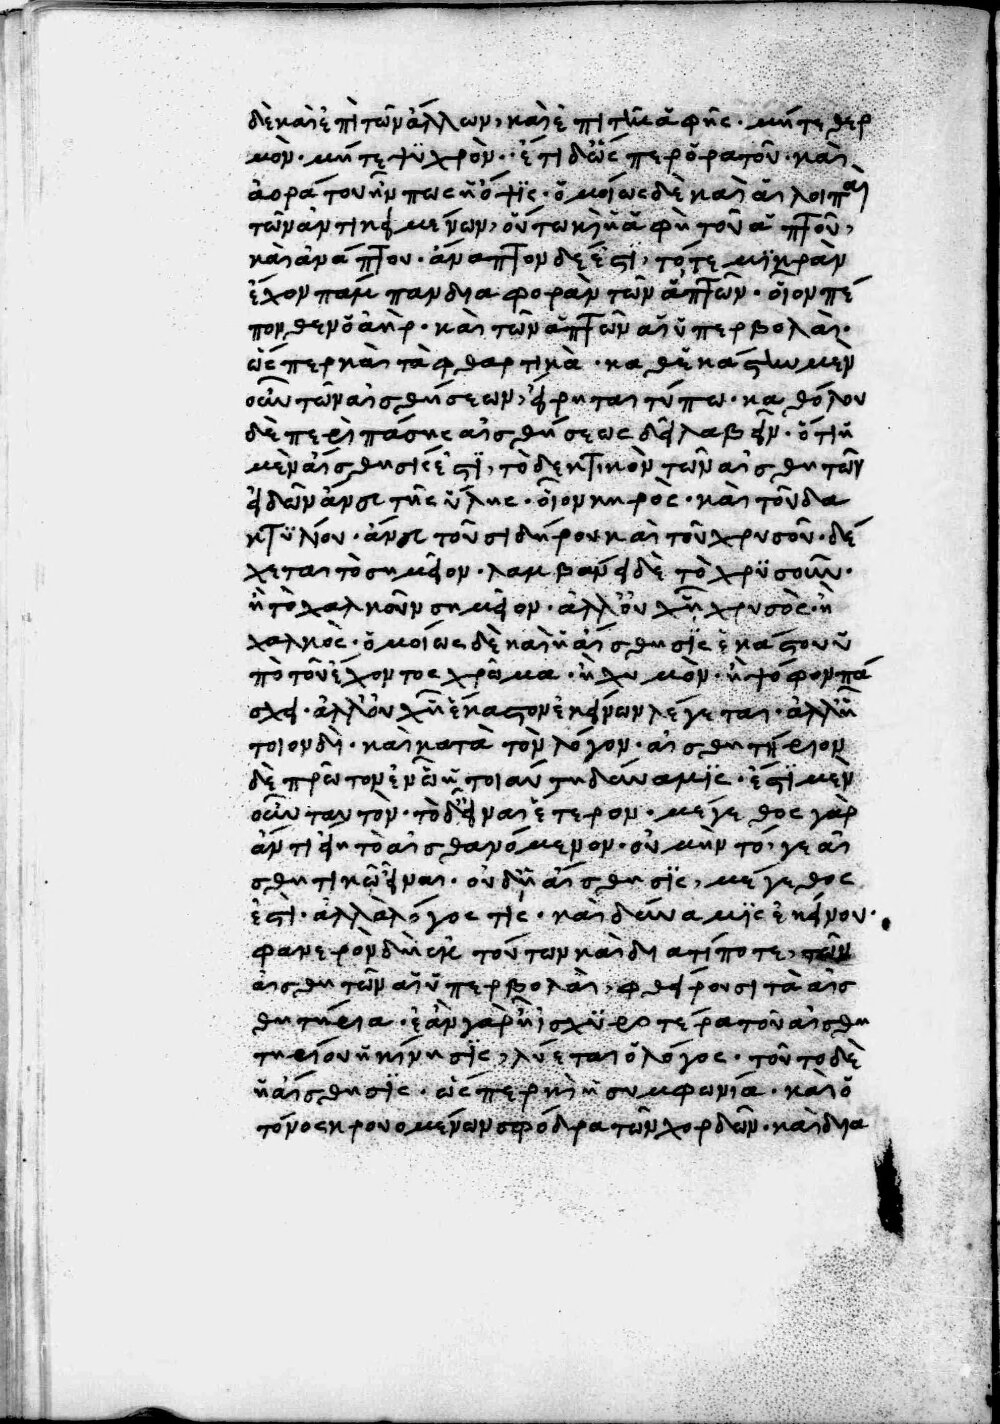 δὲ καὶ ἐπὶ τῶν ἄλλων, καὶ ἐπὶ τῆς ἁφῆς· μήτε θερ
μὸν· μήτε ψυχρὸν· ἔτι δ' ὥσπερ ὁρατοῦ· καὶ
ἀοράτου ἦν πως ἡ ὄψις· ὁμοίως δὲ καὶ αἱ λοιπαὶ
τῶν ἀντικειμένων, οὕτω καὶ ἡ ἁφὴ τοῦ ἁπτοῦ,
καὶ ἀνάπτου· ἄναπτον δέ ἐστι, τό τε μικρὰν
ἔχον πάμπαν διαφορὰν τῶν ἁπτῶν· οἷον πέ
πονθεν ὁ ἀὴρ· καὶ τῶν ἁπτῶν αἱ ὑπερβολαὶ·
ὥσπερ καὶ τὰ φθαρτικὰ· καθ' ἑκάστην μὲν
οὖν τῶν αἰσθήσεων, εἴρηται τύπω· καθόλου
δὲ περὶ πάσης αἰσθήσεως δεῖ λαβεῖν· ὅτι ἡ
μὲν αἴσθησίς ἐστι, τὸ δεκτικὸν τῶν αἰσθητῶν
εἰδῶν ἄνευ τῆς ὕλης· οἷον κηρὸς· καὶ τοῦ δα
κτυλίου· ἄνευ τοῦ σιδήρου καὶ τοῦ χρυσοῦ· δέ
χεται τὸ σημεῖον· λαμβάνει δὲ τὸ χρυσοῦν·
ἢ τὸ χαλκοῦν σημεῖον· ἀλλ' οὐχ ἧ χρυσὸς· ἢ
χαλκὸς· ὁμοίως δὲ καὶ ἡ αἴσθησις ἑκάστου ὑ
πὸ τοῦ ἔχοντος χρῶμα· ἢ χυμὸν· ἢ ψόφον πά
σχει· ἀλλ' οὐχ ἧ ἕκαστον ἐκείνων λέγεται· ἀλλ' ἧ
τοιονδὶ· καὶ κατὰ τὸν λόγον· αἰσθητήριον
δὲ πρῶτον ἐν ὧ ἡ τοιαύτη δύναμις· ἔστι μὲν
οὖν ταυτὸν· τὸ δ' εἶναι ἕτερον· μέγεθος γὰρ
ἄν τι εἴη τὸ αἰσθανόμενον· οὐ μὴν τό, γε αἰ
σθητικῶ εἶναι· οὐδ' ἡ αἴσθησις, μέγεθός
ἐστι· ἀλλὰ λόγος τις· καὶ δύναμις ἐκείνου·
φανερὸν δ' ἐκ τούτων καὶ διατίποτε, τῶν
αἰσθητῶν αἱ ὑπερβολαὶ, φθείρουσι τὰ αἰσ
θητήρια· ἐὰν γὰρ ἦ ἰσχυροτέρα τοῦ αἰσθη
τηρίου ἡ κίνησις, λύεται ὁ λόγος· τοῦτο δὲ
ἡ αἴσθησις· ὥσπερ καὶ ἡ συμφωνία· καὶ ὁ
τόνος κρουομένων σφόδρα τῶν χορδῶν· καὶ δια